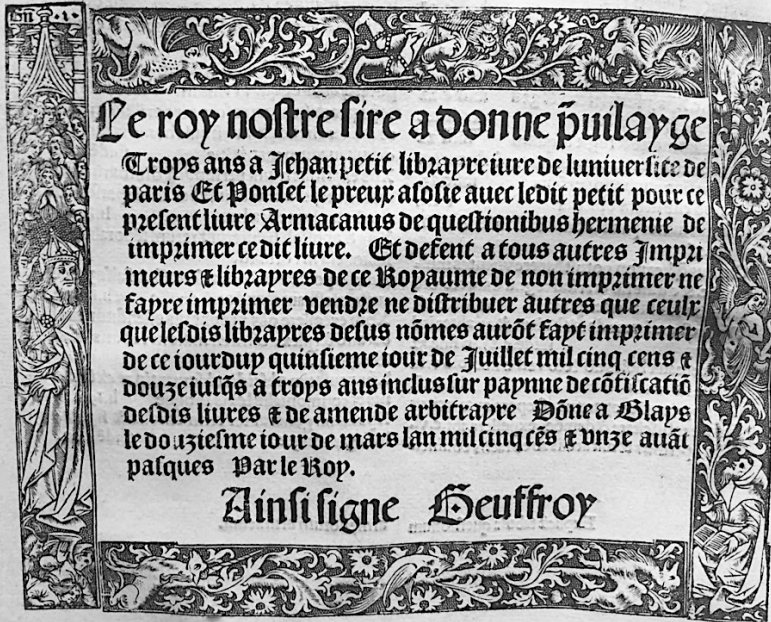 Le roy nostre sire a donne p̃uilayge
Troys ans a Jehan petit librayre iure de luniuersite de
paris Et Ponset le preux asosie auec ledit petit pour ce
present liure Armacanus de questionibus hermenie de
imprimer ce dit liure. Et defent a tous autres Impri
meurs ⁊ librayres de ce Royaume de non imprimer ne
fayre imprimer vendre ne distribuer autres que ceulx
que lesdis librayres desus nõmes aurõt fayt imprimer
de ce iourduy quinsieme iour de Juillet mil cinq cens ⁊
douze iusq̃s a troys ans inclus sur paynne de cõfiscatiõ
desdis liures ⁊ de amende arbitrayre Dõne a Blays
le douziesme iour de mars lan mil cinq cẽs ⁊ vnze auãt
pasques Par le Roy.
Ainsi signe Geuffroy